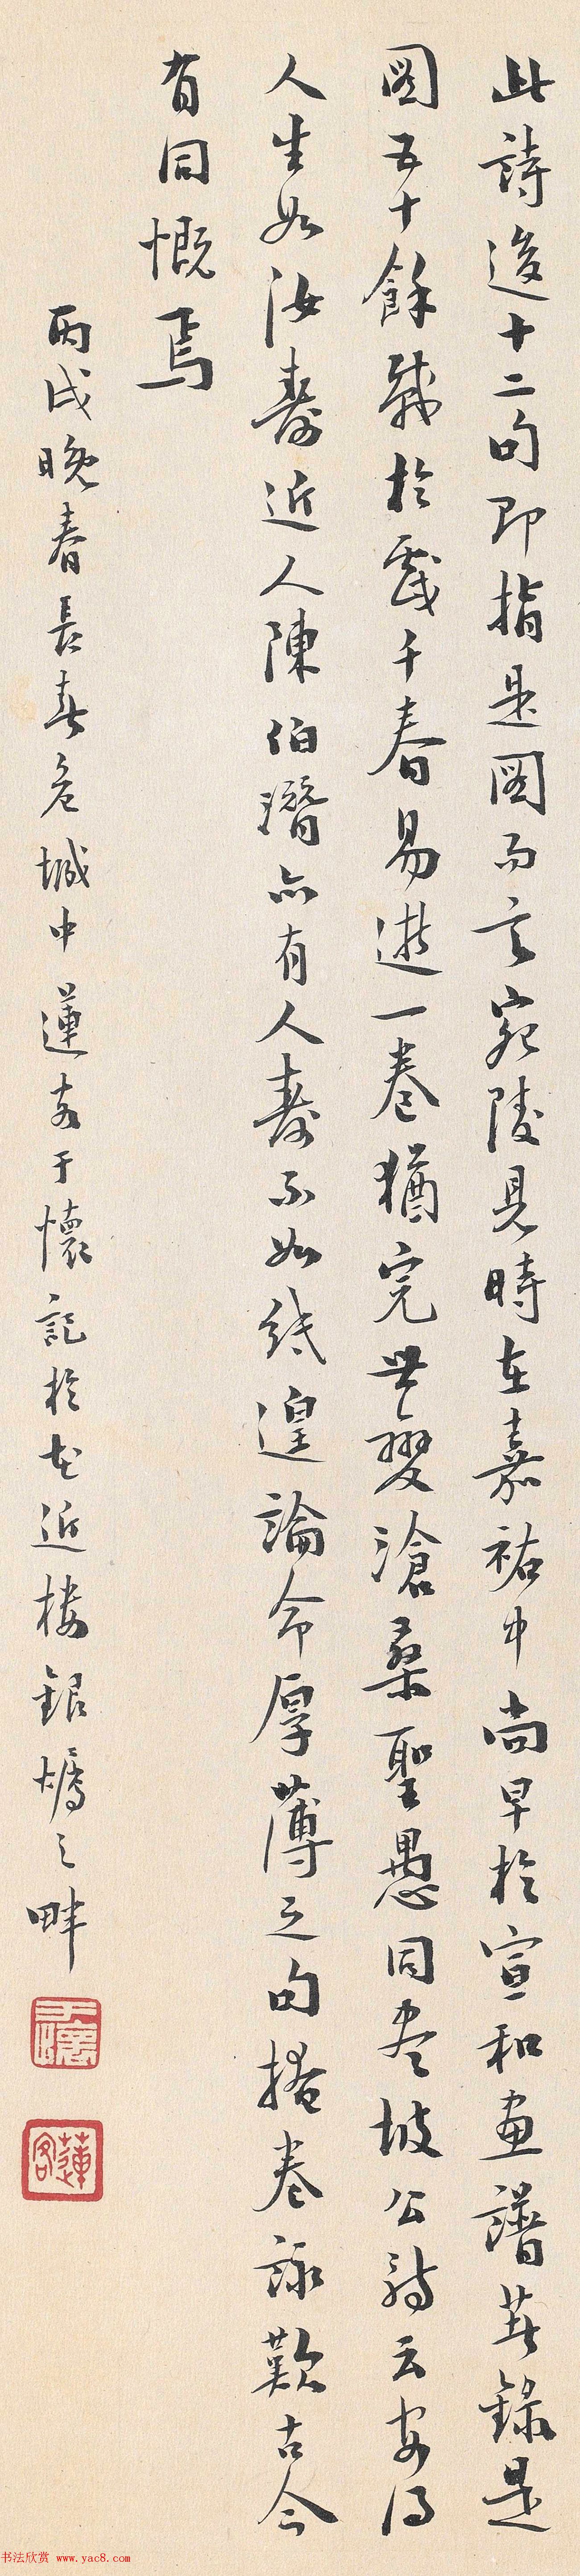 此詩後十二句即指是圖而言宛陵見時在嘉祐中尚早於宣和畫譜著錄是
圖五十餘載於戲千春易逝一卷猶完世變滄桑聖愚同盡坡公詩云安得
人生如汝壽近人陳伯潛亦有人壽不如紙遑論命厚薄之句掩卷詠歎古今
有同慨焉
丙戌晚春長春危城中蓮客于懷記於花近樓銀燭之畔
于懷
蓮客
书法欣赏 www.yac8.com